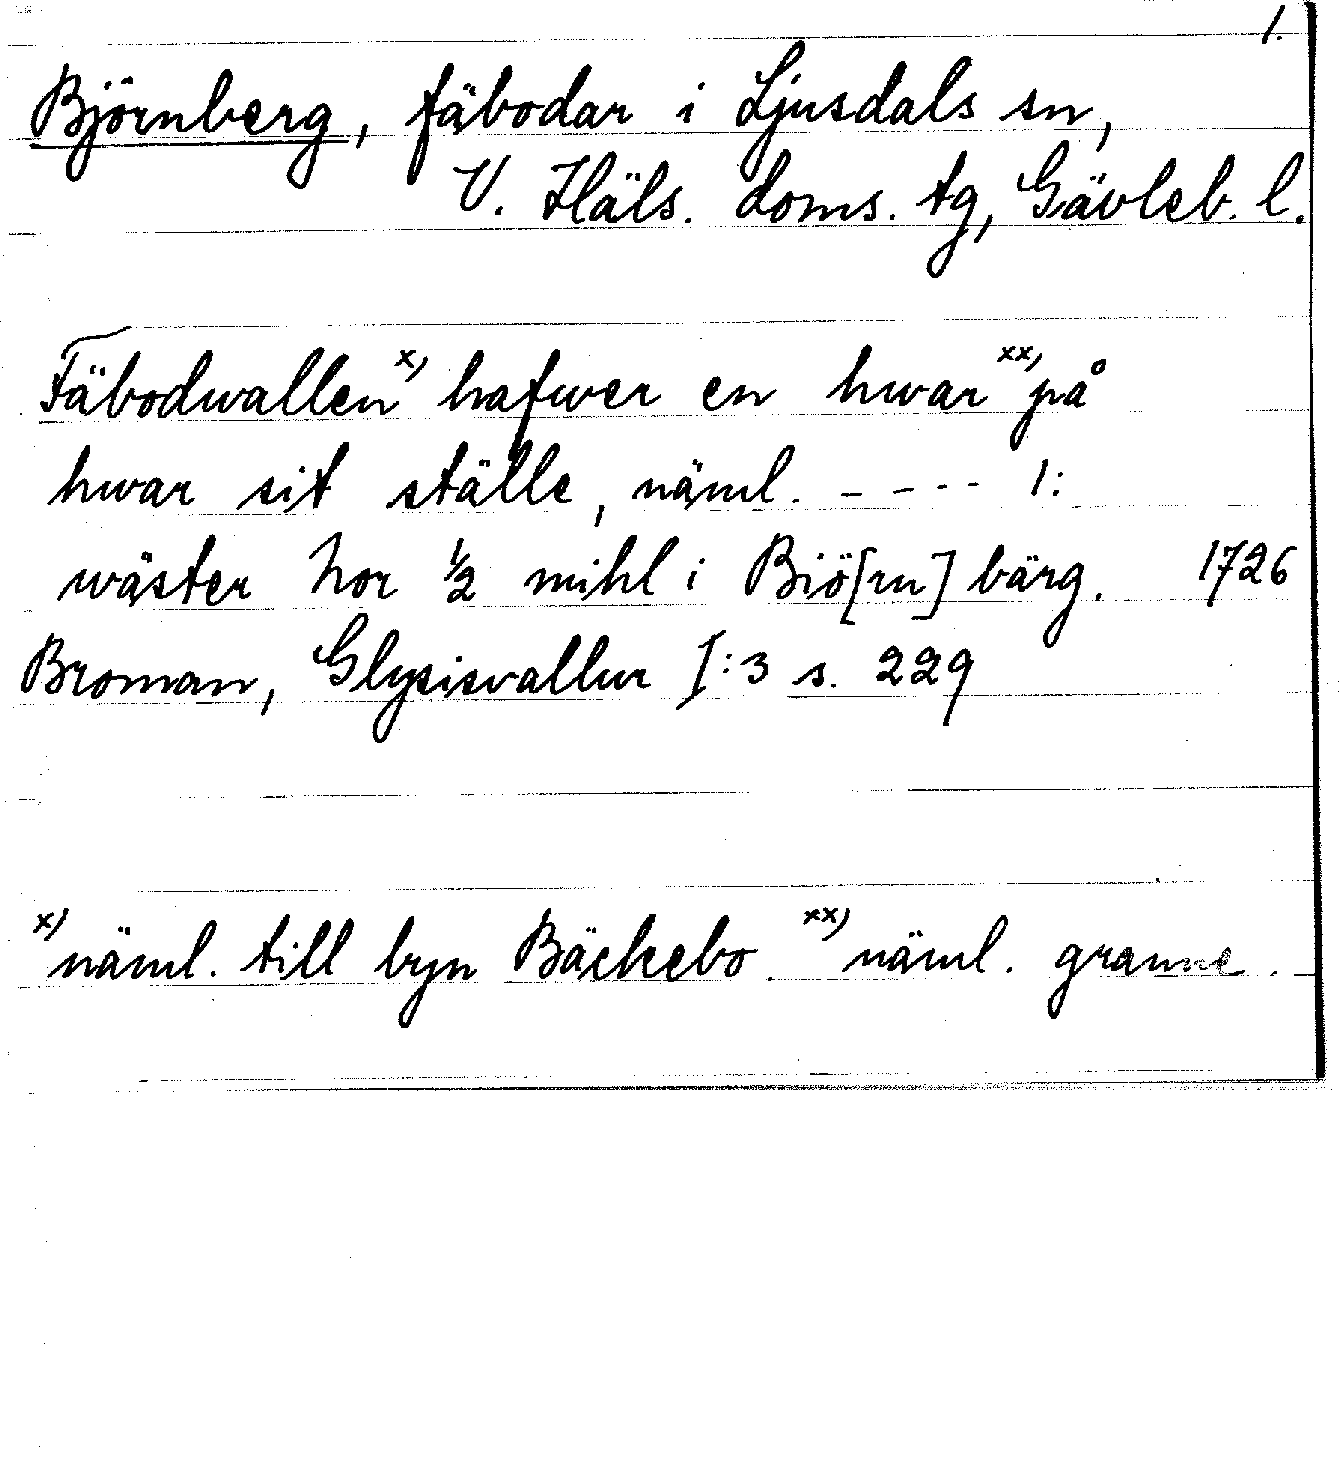 1.
Björnberg, fäbodar i Ljusdals sn,
V. Häls. doms. tg, Gävleb. l.
Fäbodwallen x) hafwer en hwar xx) på
hwar sit ställe, näml. - - - - 1:
wäster hor 1/2 mihl i Biö[rn]bärg. 1726
Broman, Glysisvallur I:3 s. 229
x) näml. till byn Bäckebo. xx) näml. granne.